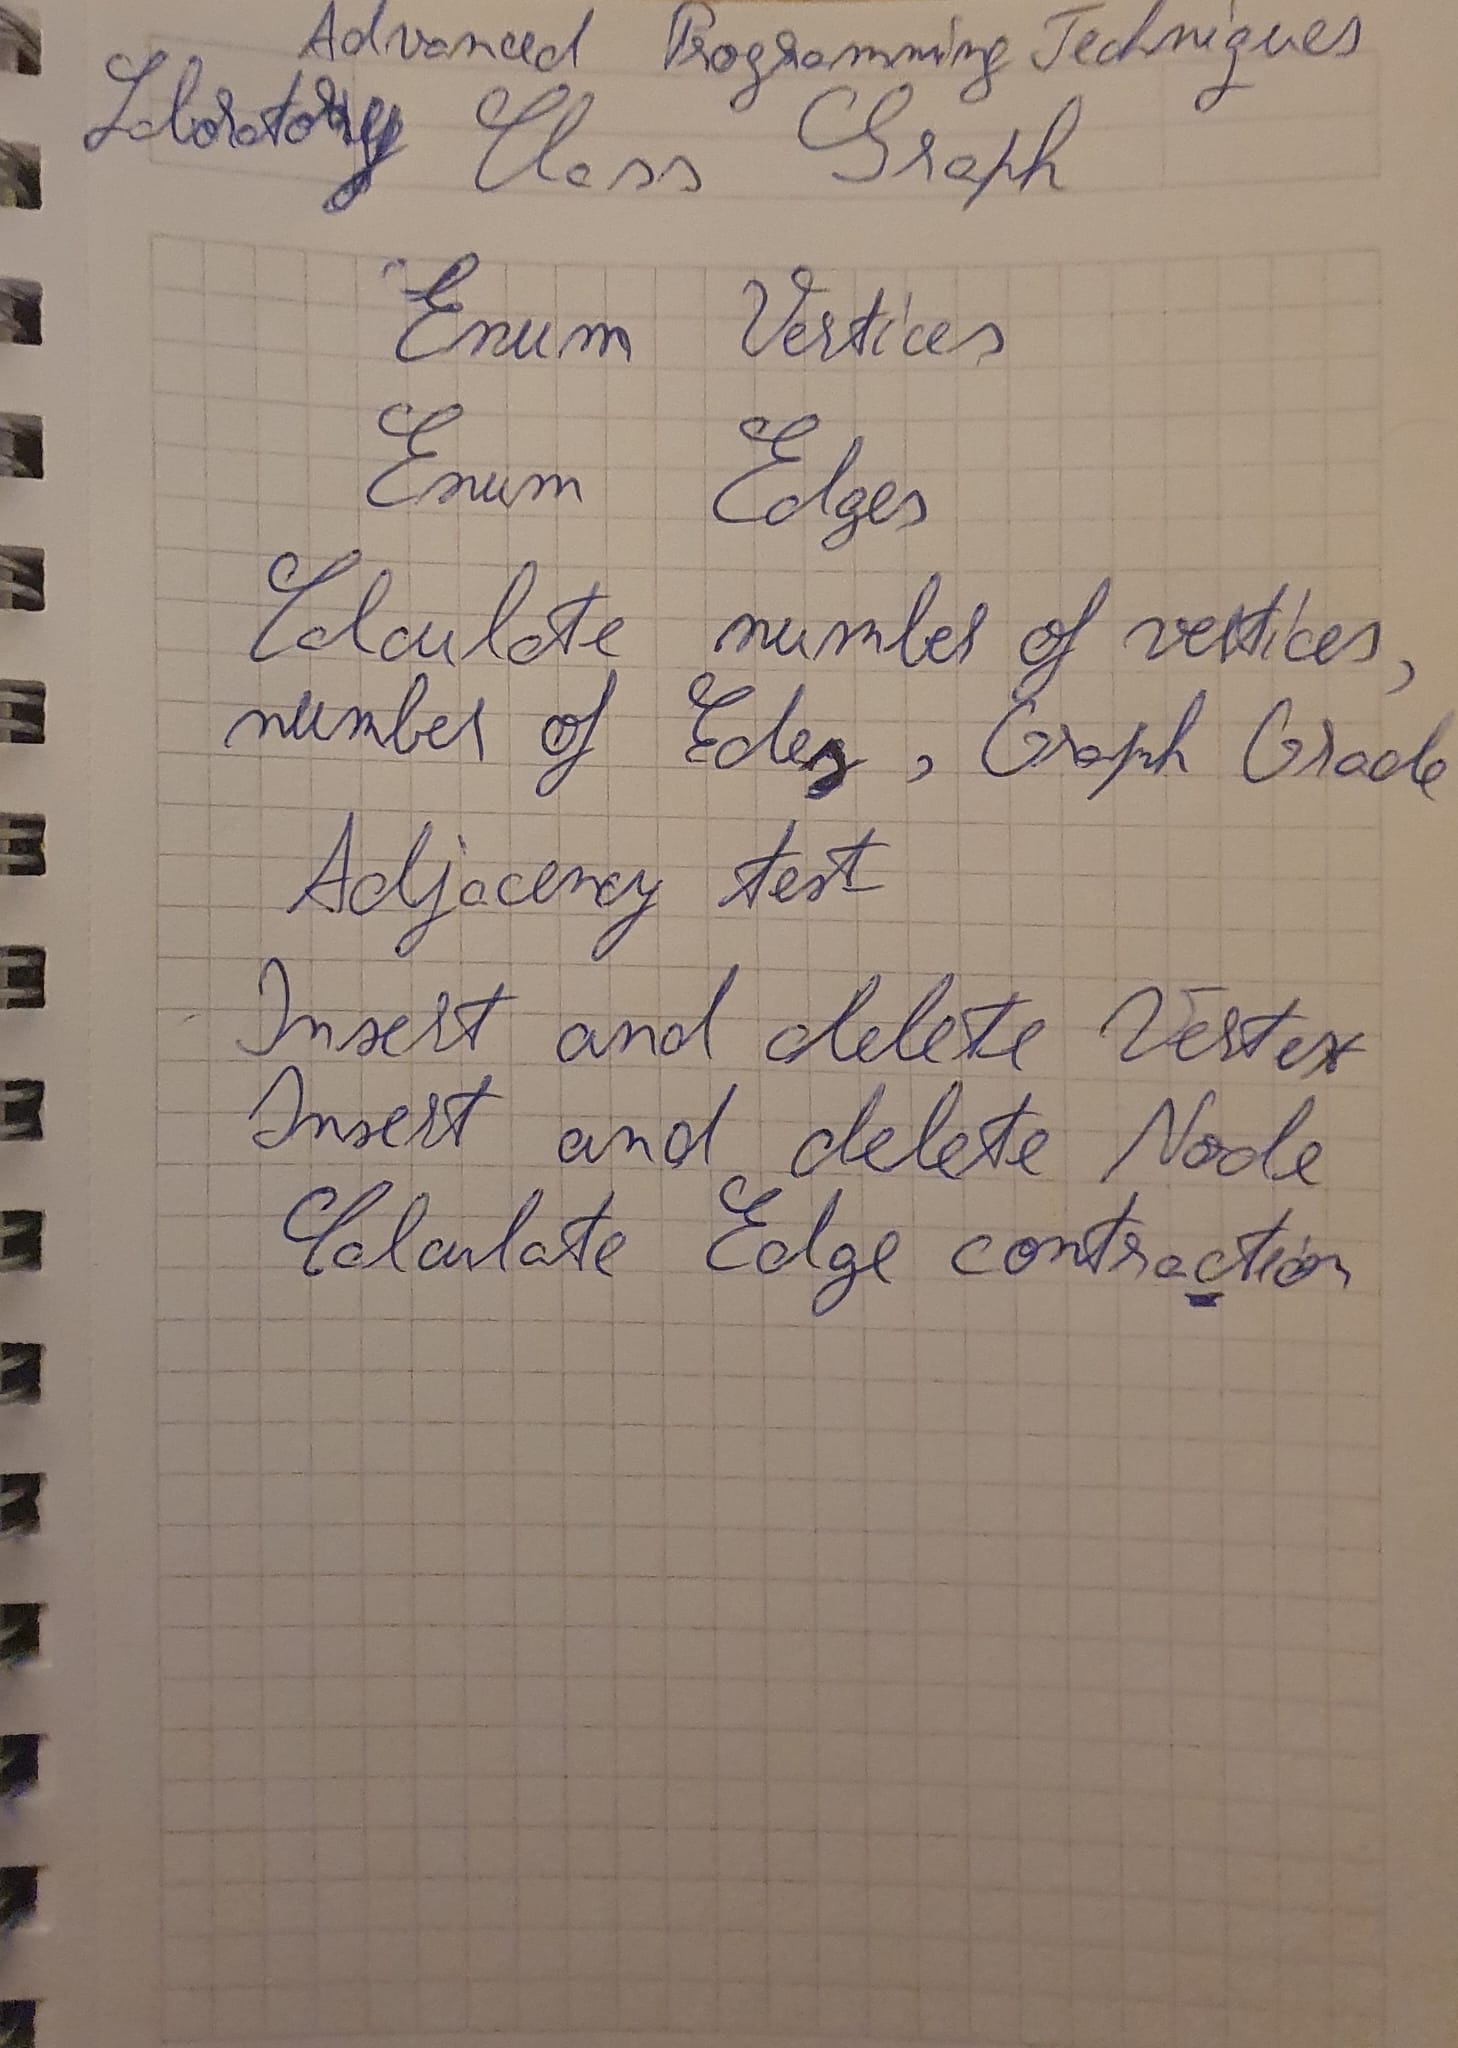 Advanced Programming Techniques
Laboratory Class Graph
Enum Vertices
Enum Edges
Calculate number of vertices,
number of Edes, Graph Grade
Adjacency test
Insert and delete Vertex
Insert and delete Node
Calculate Edge contraction